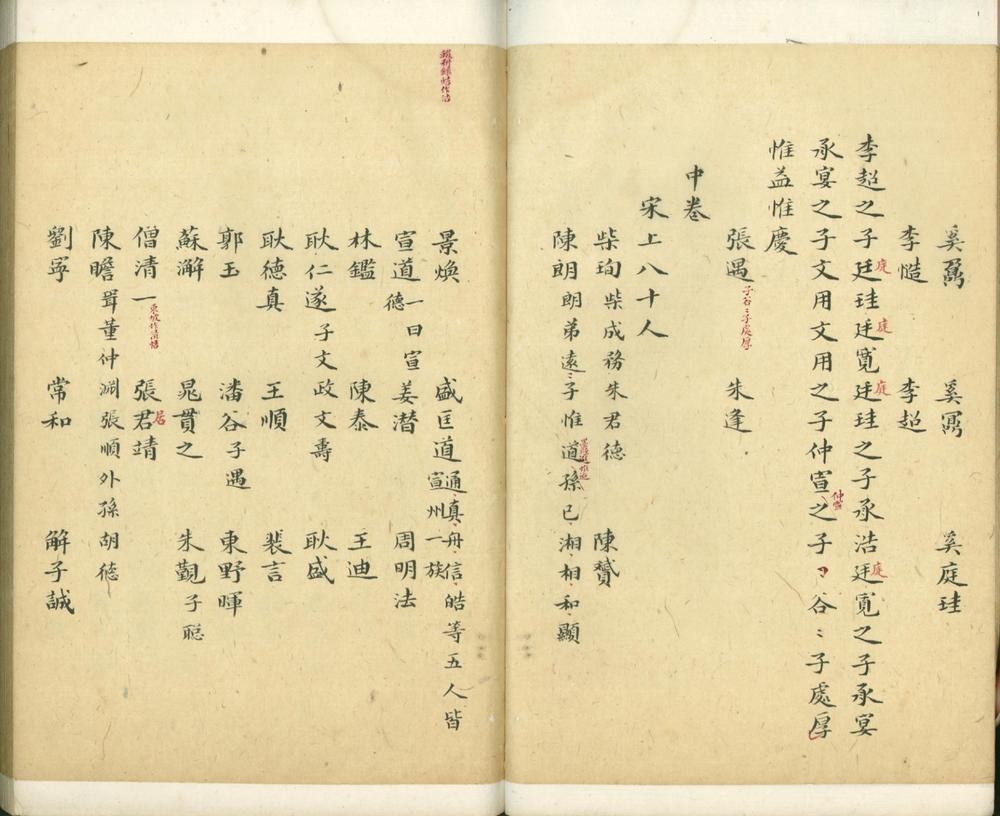 奚鼐 奚鼏 奚庭珪
李慥 李超
李超之子廷珪廷寬廷珪之子承浩廷寬之子承宴
庭 庭 庭 庭
承宴之子文用文用之子仲宣之子谷〻子處厚
仲宣
惟益惟慶
張遇 朱逢
子谷〻子處厚
中卷
宋上八十人
柴珣柴成務朱君德 陳贇
陳朗朗弟遠〻子惟道孫已湘相和顯
景煥 盛匡道通真舟信皓等五人皆宣州一族
宣道一曰宣德 姜潛 周明法
林鑑 陳泰 王迪
耿仁遂子文政文壽 耿盛
耿德真 王順 裴言
郭玉 潘谷子遇 東野暉
蘇澥 晁貫之 朱覲子聡
僧清一 張君靖
東坡作清悟 居
陳瞻壻董仲淵張順外孫胡德
劉寧 常和 解子誠